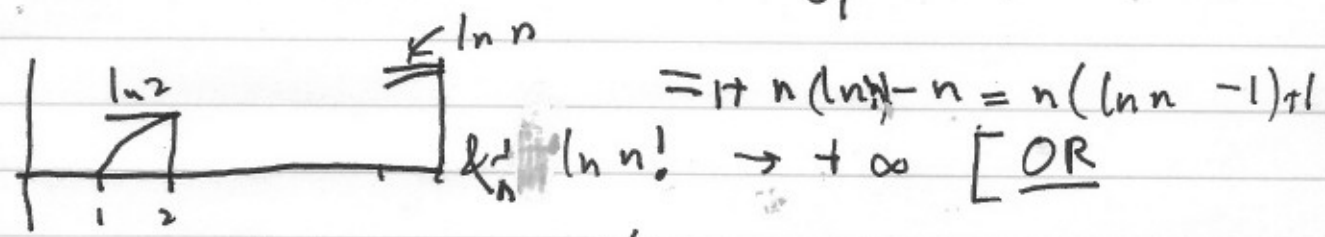 ln n
ln 2 = 1 + n(ln n) - n = n(ln n - 1) + 1
& 1/n ln n! → + ∞ [OR
1 2 n